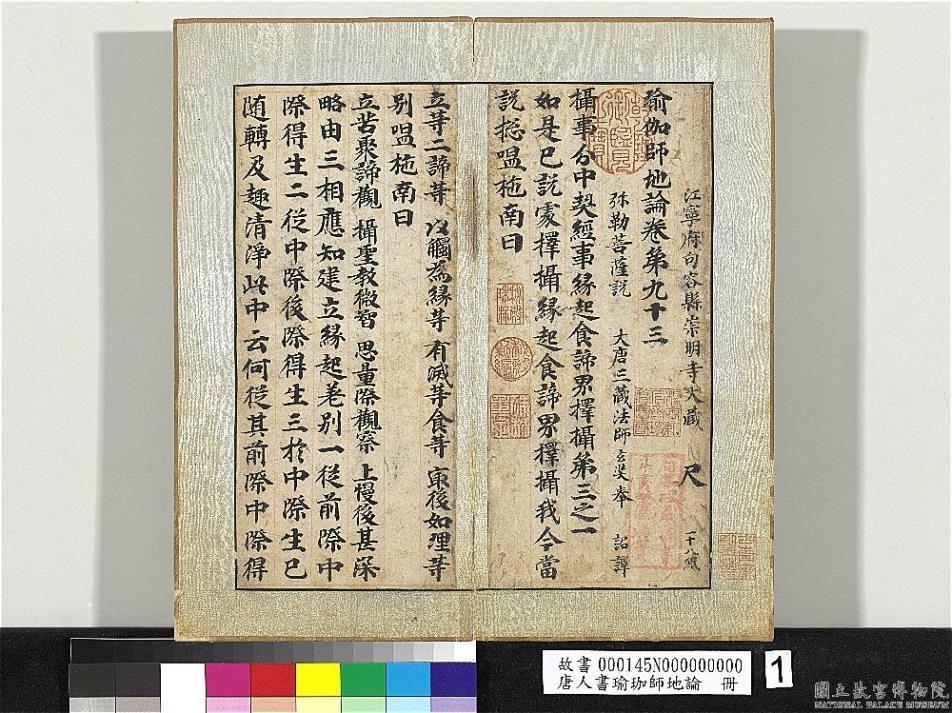 江寧府句容縣崇明寺大藏 尺 二十八紙
瑜伽師地論卷第九十三
弥勒菩薩説 大唐三藏法師玄奘奉 詔譯
攝事分中契經事緣起食諦界擇攝第三之一
如是已說處擇攝緣起食諦界擇攝我今當
説揔嗢柁南曰
立等二諦等 以觸為緣等 有滅等食等 寂後如理等
别嗢柁南曰
立苦聚諦觀 攝聖教微智 思量際觀察 上慢後甚深
略由三相應知建立緣起差别一從前際中
際得生二從中際後際得生三於中際生已
随轉及趣清淨此中云何從其前際中際得
故書 000145N000000000
唐人書瑜珈師地論 冊
1
國立故宮博物院
NATIONAL PALACE MUSEUM